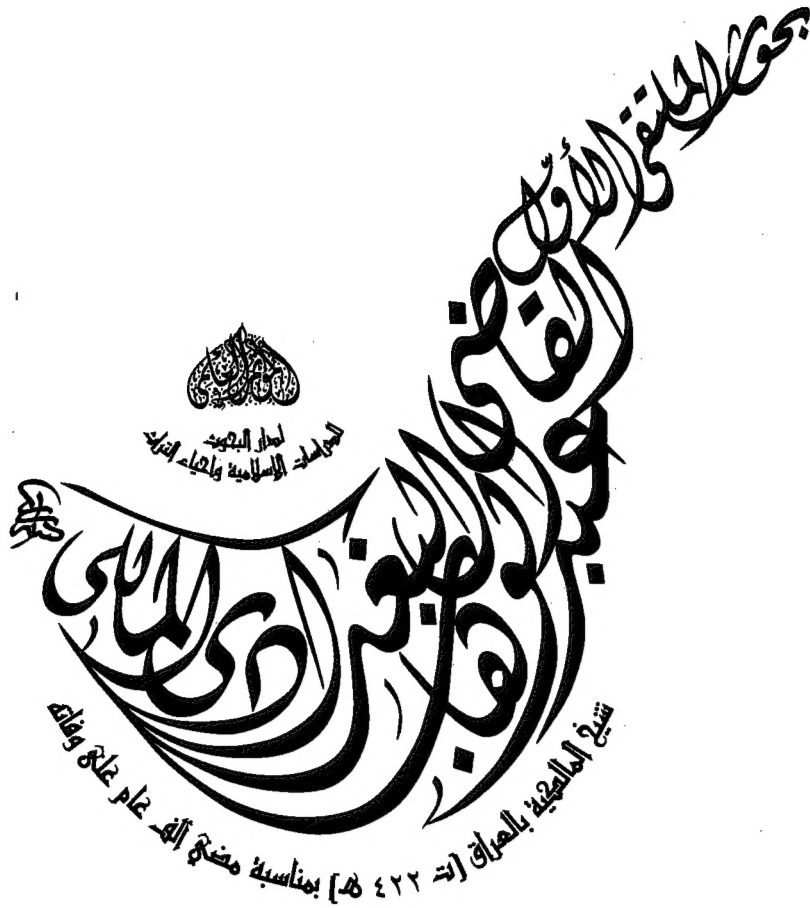 بحوث الملتقى الأول
القاضي
عبد الوهاب
البغدادي المالكي
شيخ المالكية بالعراق (ت ٤٢٢ هـ) بمناسبة مضي ألف عام على وفاته
المؤتمر العلمي
لدار البحوث
للدراسات الإسلامية وإحياء التراث